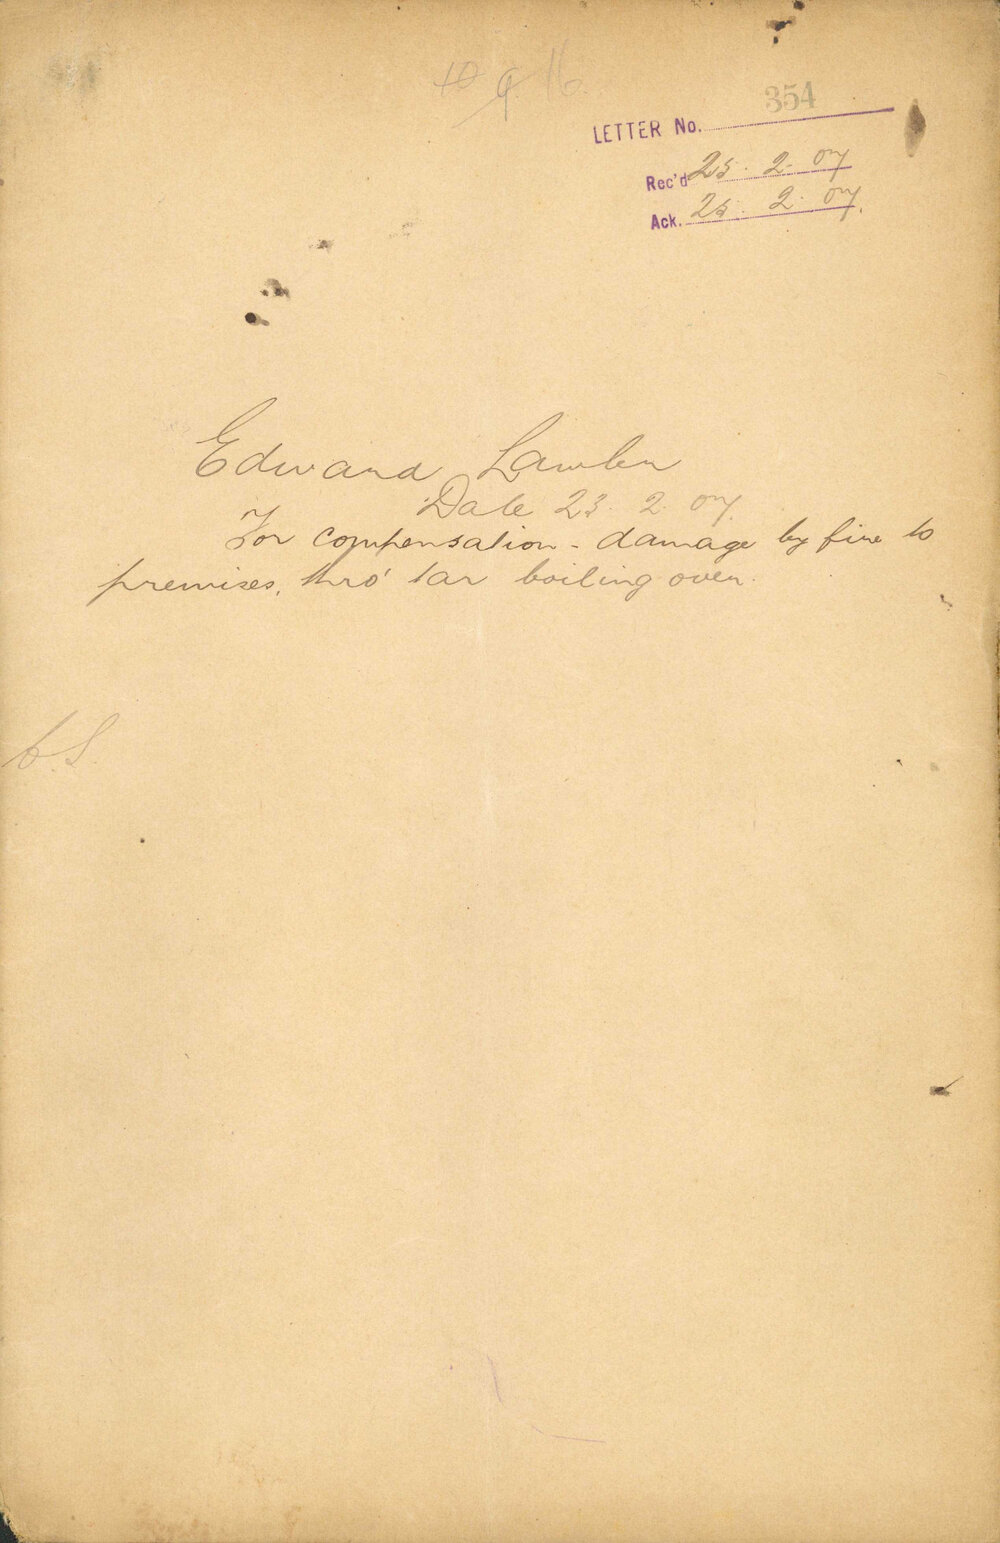 10 9 16
354
LETTER No.
Rec'd 25. 2. 07
Ack. 25. 2. 07.
Edward Lawler
Date 23. 2. 07.
For compensation - damage by fire to
premises, thro' tar boiling over.